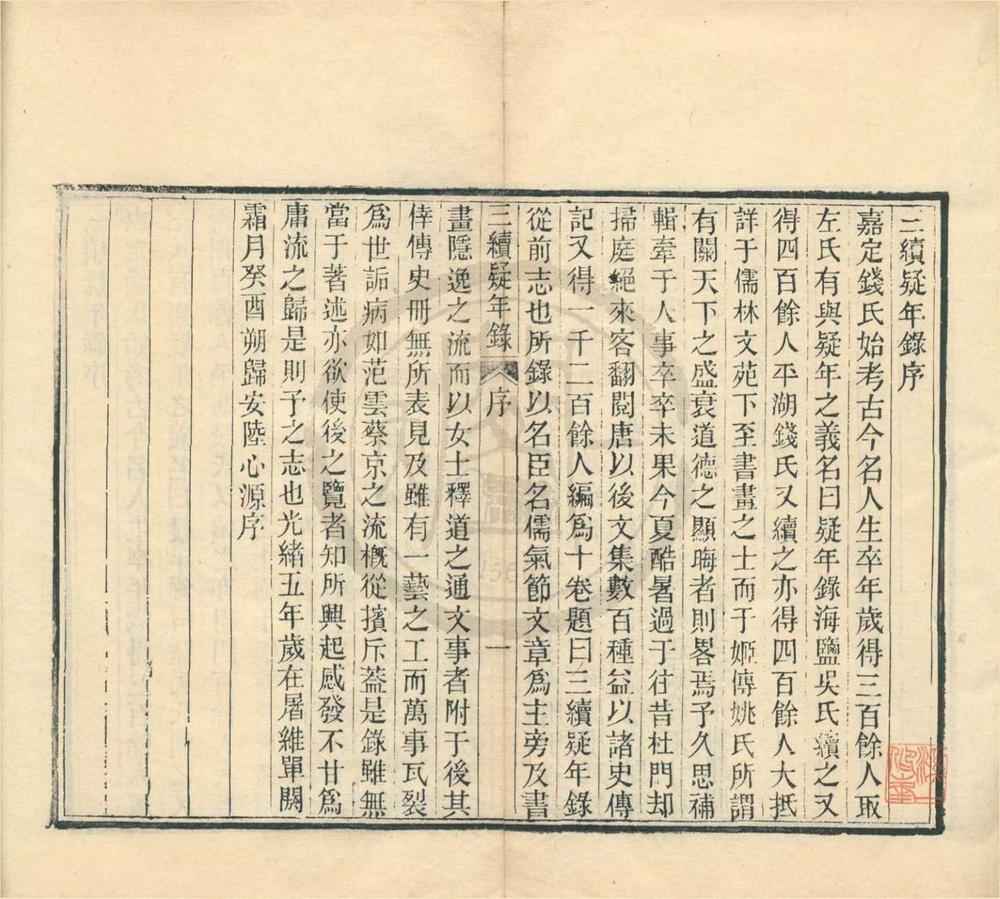 三續疑年錄序
嘉定錢氏始考古今名人生卒年歲得三百餘人取
左氏有與疑年之義名曰疑年錄海鹽吳氏續之又
得四百餘人平湖錢氏又續之亦得四百餘人大抵
詳于儒林文苑下至書畫之士而于姬傳姚氏所謂
有關天下之盛衰道德之顯晦者則畧焉予久思補
輯牽于人事卒卒未果今夏酷暑過于往昔杜門却
掃庭絕來客翻閱唐以後文集數百種益以諸史傳
記又得一千二百餘人編爲十卷題曰三續疑年錄
從前志也所錄以名臣名儒氣節文章爲主旁及書
三續疑年錄 序 一
畫隱逸之流而以女士釋道之通文事者附于後其
倖傳史冊無所表見及雖有一藝之工而萬事瓦裂
爲世詬病如范雲蔡京之流槪從擯斥葢是錄雖無
當于著述亦欲使後之覽者知所興起感發不甘爲
庸流之歸是則予之志也光緒五年歲在屠維單閼
霜月癸酉朔歸安陸心源序